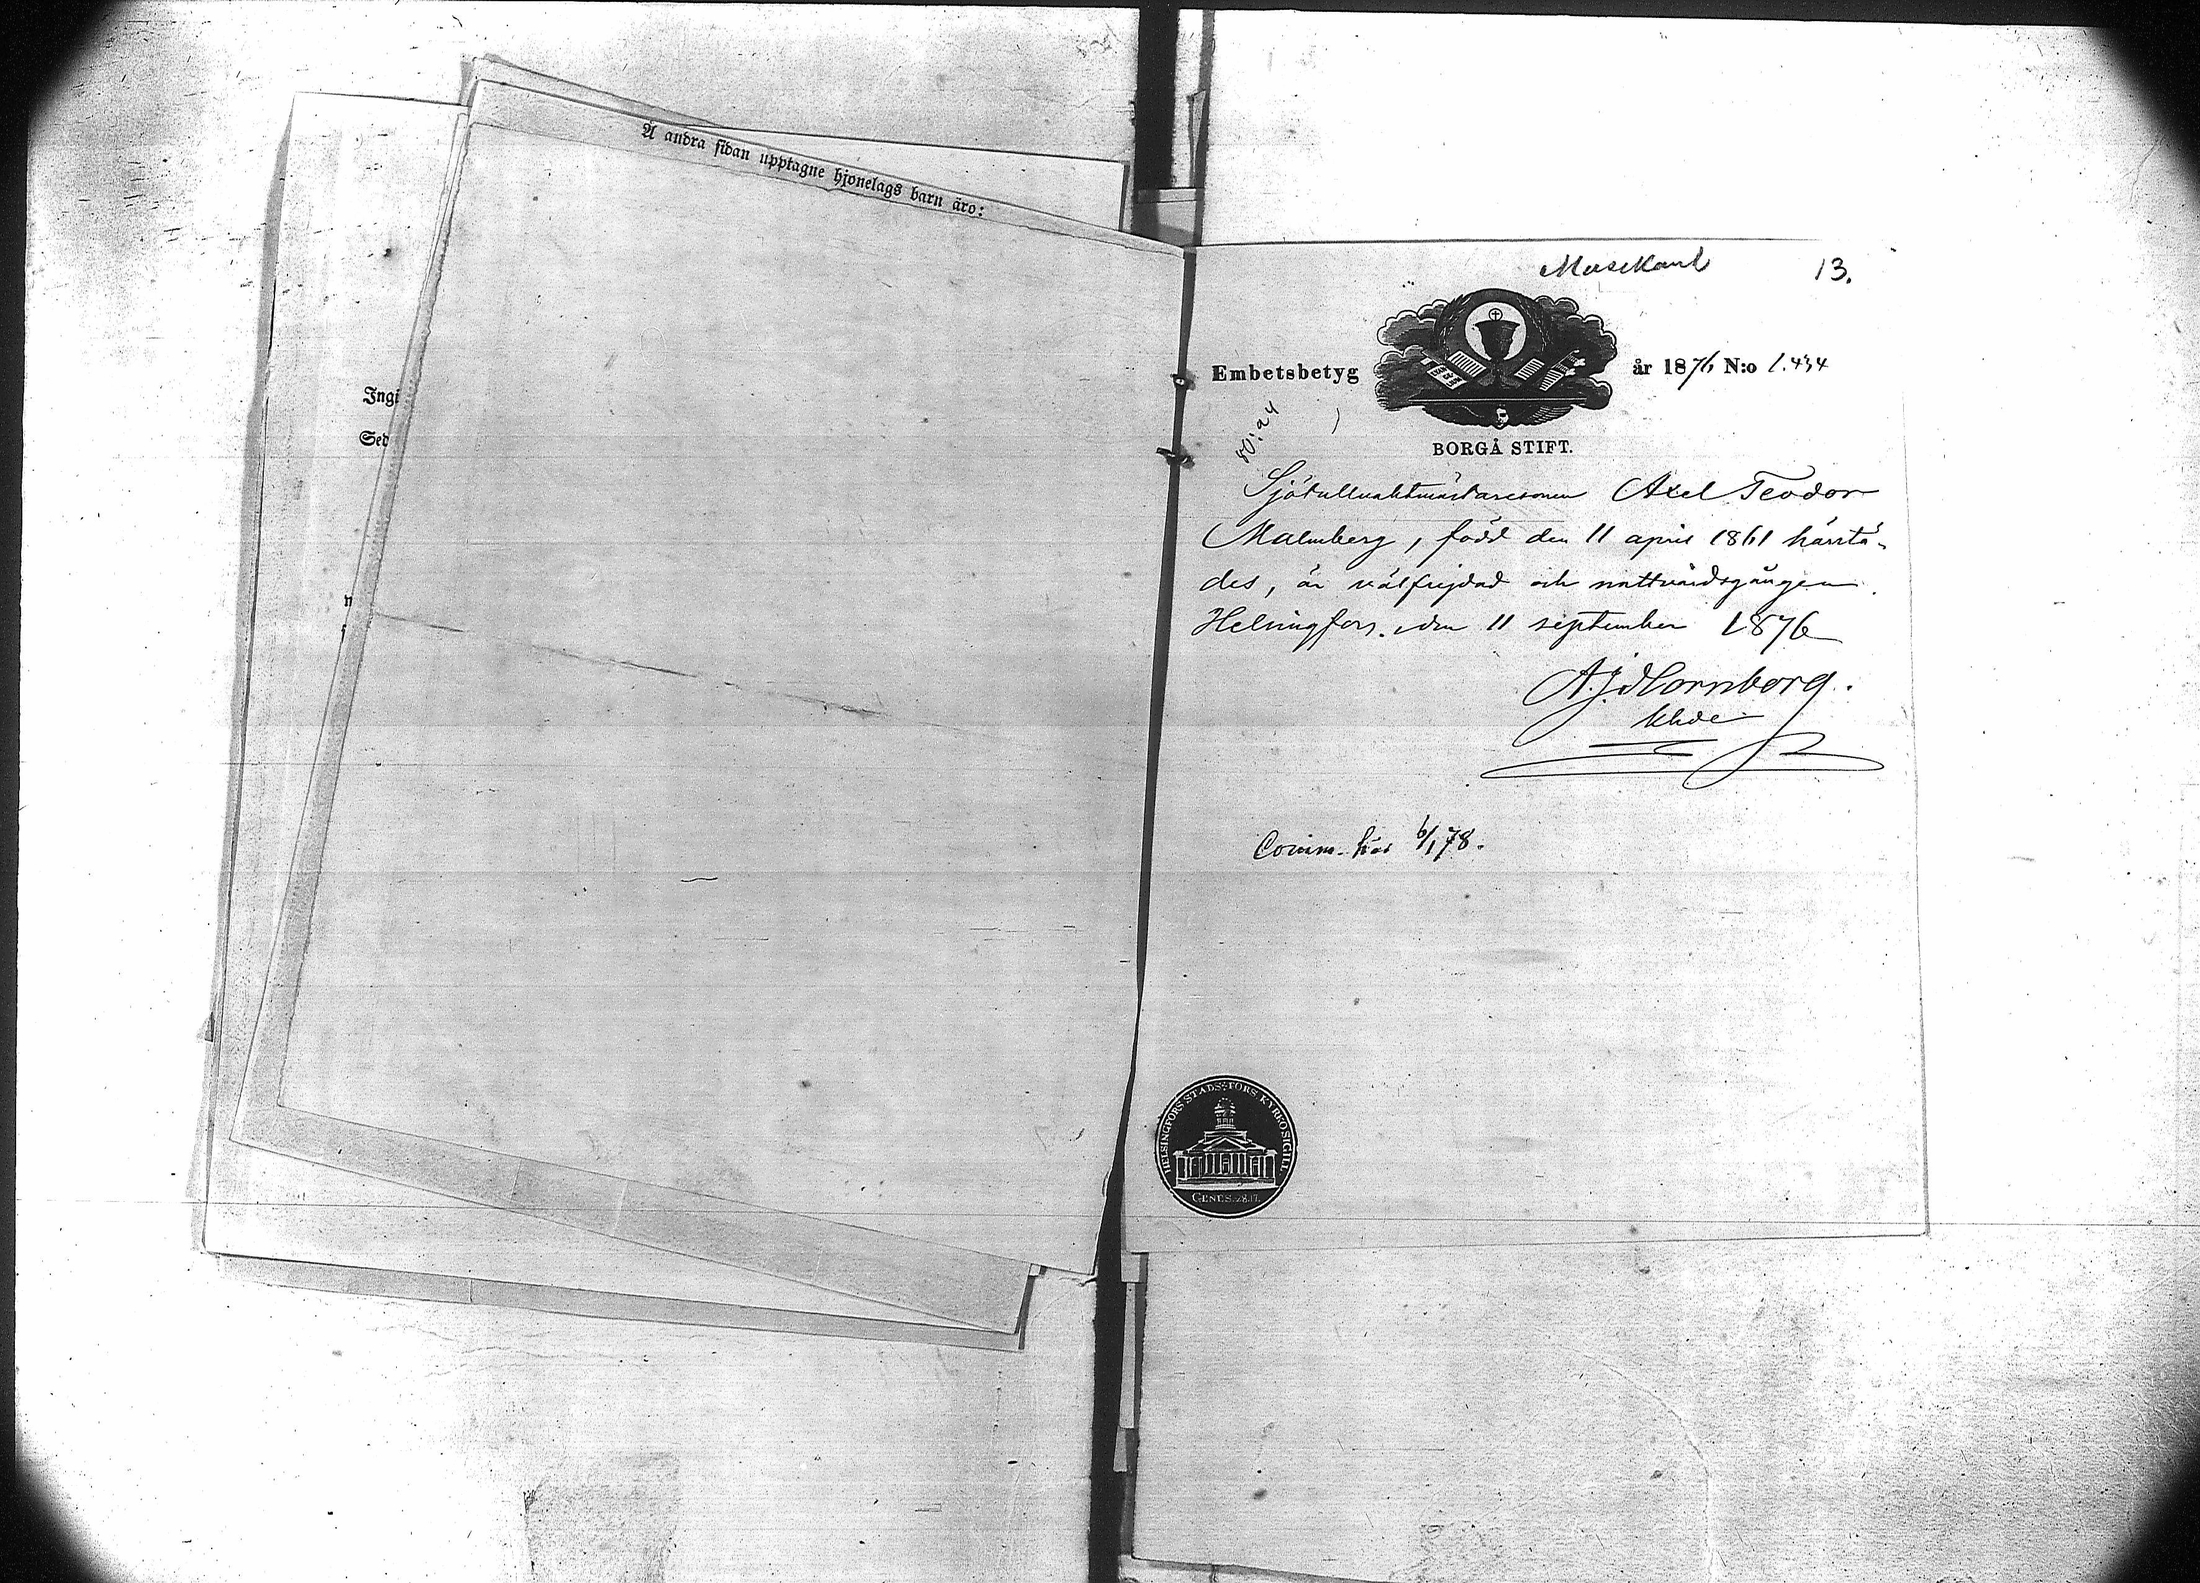 Å andra sidan upptagne hjonelags barn äro:
Ingi
Sed
Musikant
13.
Embetsbetyg
år 1876 N:o 1.434
BORGÅ STIFT.
Sjötullvaktmästaresonen Axel Teodor
Malmberg, född den 11 april 1861 härstä-
des, är välfrejdad och nattvardsgången.
Helsingfors den 11 september 1876
A. J. Hornborg.
Comm. här 6/1 78.
HELSINGFORS STADS-FÖRS. KYRKOSIGILL.
GENES. 28.17.